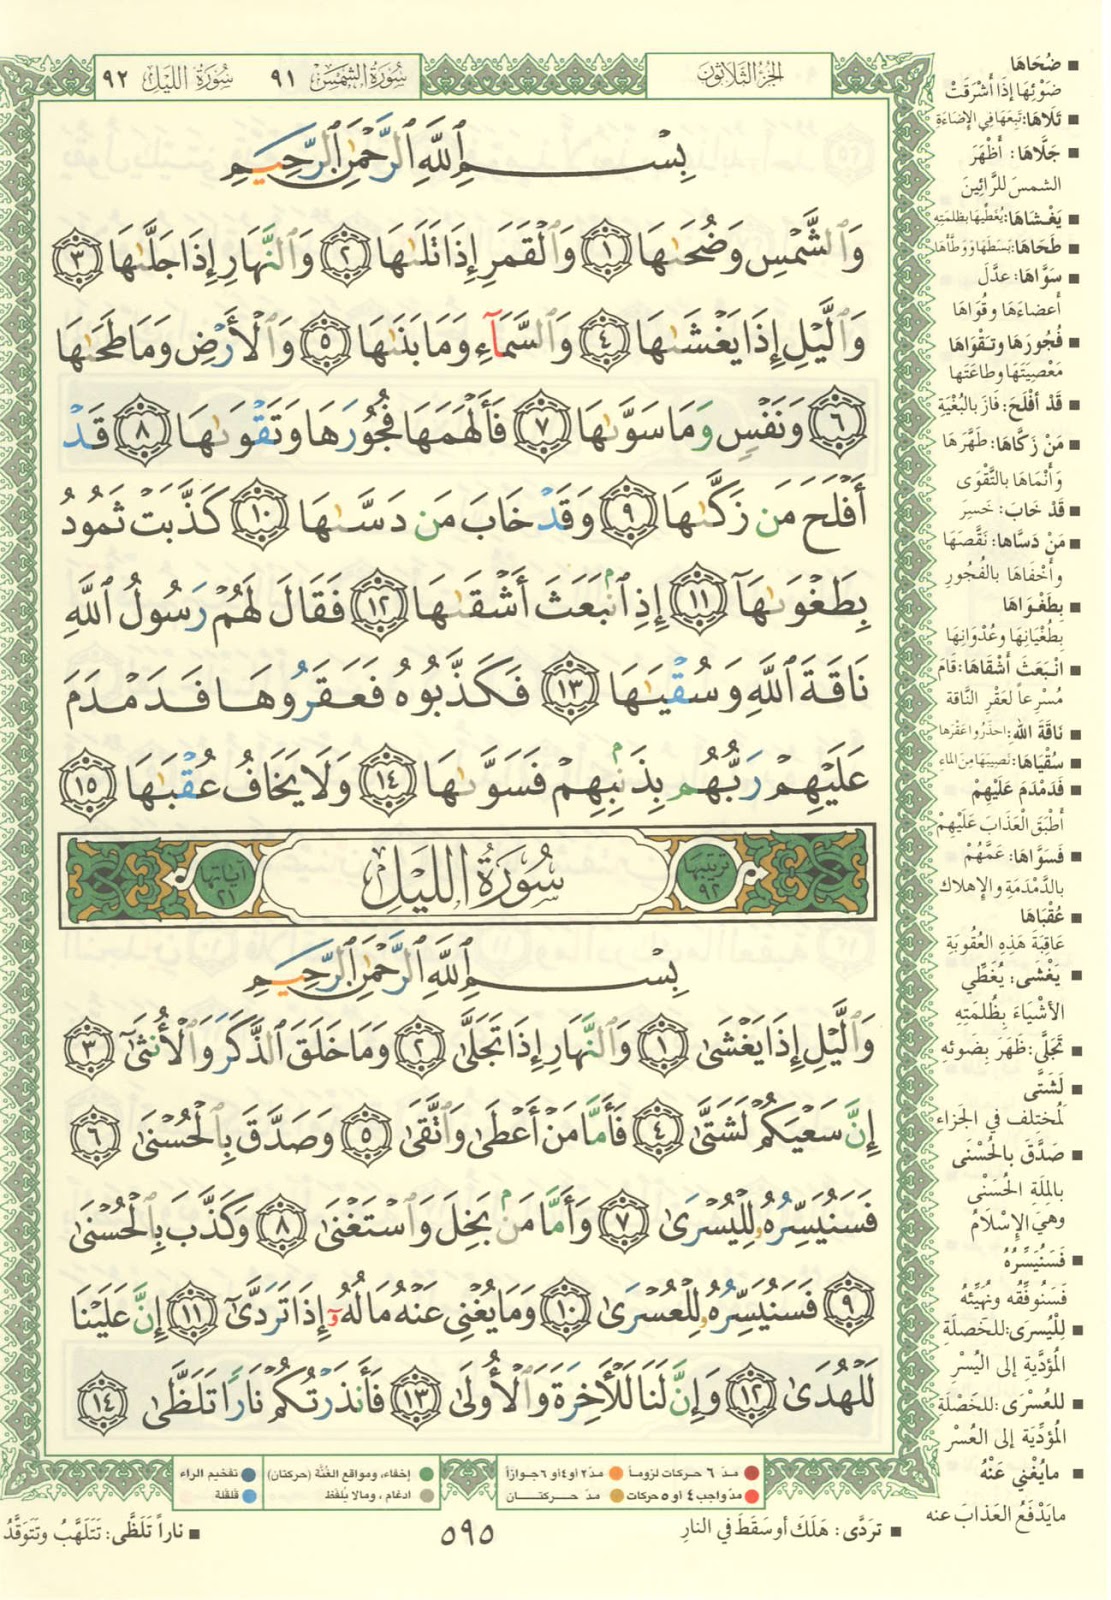 الجزء الثلاثون
سورة الشمس ٩١
سورة الليل ٩٢
بِسْمِ ٱللَّهِ ٱلرَّحْمَٰنِ ٱلرَّحِيمِ
وَٱلشَّمْسِ وَضُحَىٰهَا ١ وَٱلْقَمَرِ إِذَا تَلَىٰهَا ٢ وَٱلنَّهَارِ إِذَا جَلَّىٰهَا ٣
وَٱلَّيْلِ إِذَا يَغْشَىٰهَا ٤ وَٱلسَّمَآءِ وَمَا بَنَىٰهَا ٥ وَٱلْأَرْضِ وَمَا طَحَىٰهَا
٦ وَنَفْسٍ وَمَا سَوَّىٰهَا ٧ فَأَلْهَمَهَا فُجُورَهَا وَتَقْوَىٰهَا ٨ قَدْ
أَفْلَحَ مَن زَكَّىٰهَا ٩ وَقَدْ خَابَ مَن دَسَّىٰهَا ١٠ كَذَّبَتْ ثَمُودُ
بِطَغْوَىٰهَآ ١١ إِذِ ٱنۢبَعَثَ أَشْقَىٰهَا ١٢ فَقَالَ لَهُمْ رَسُولُ ٱللَّهِ
نَاقَةَ ٱللَّهِ وَسُقْيَٰهَا ١٣ فَكَذَّبُوهُ فَعَقَرُوهَا فَدَمْدَمَ
عَلَيْهِمْ رَبُّهُم بِذَنۢبِهِمْ فَسَوَّىٰهَا ١٤ وَلَا يَخَافُ عُقْبَٰهَا ١٥
ترتيبها ٩٢
سُورَةُ الليْل
آياتها ٢١
بِسْمِ ٱللَّهِ ٱلرَّحْمَٰنِ ٱلرَّحِيمِ
وَٱلَّيْلِ إِذَا يَغْشَىٰ ١ وَٱلنَّهَارِ إِذَا تَجَلَّىٰ ٢ وَمَا خَلَقَ ٱلذَّكَرَ وَٱلْأُنثَىٰٓ ٣
إِنَّ سَعْيَكُمْ لَشَتَّىٰ ٤ فَأَمَّا مَنْ أَعْطَىٰ وَٱتَّقَىٰ ٥ وَصَدَّقَ بِٱلْحُسْنَىٰ ٦
فَسَنُيَسِّرُهُۥ لِلْيُسْرَىٰ ٧ وَأَمَّا مَنۢ بَخِلَ وَٱسْتَغْنَىٰ ٨ وَكَذَّبَ بِٱلْحُسْنَىٰ
٩ فَسَنُيَسِّرُهُۥ لِلْعُسْرَىٰ ١٠ وَمَا يُغْنِى عَنْهُ مَالُهُۥٓ إِذَا تَرَدَّىٰٓ ١١ إِنَّ عَلَيْنَا
لَلْهُدَىٰ ١٢ وَإِنَّ لَنَا لَلْأَخِرَةَ وَٱلْأُولَىٰ ١٣ فَأَنذَرْتُكُمْ نَارًا تَلَظَّىٰ ١٤
■ ضُحَاهَا
ضَوْئِهَا إذَا أَشْرَقَتْ
■ تَلَاهَا: تَبِعَهَا فِي الإِضَاءَةِ
■ جَلَّاهَا: أَظْهَرَ
الشمسَ للرَّائِينَ
■ يَغْشَاهَا: يُغَطِّيهَا بِظُلْمَتِهِ
■ طَحَاهَا: بَسَطَهَا وَوَطَّأَهَا
■ سَوَّاهَا: عدَّلَ
أعضاءَهَا وقُوَاهَا
■ فُجُورَهَا وتقْوَاهَا
مَعْصِيَتَهَا وطاعَتَها
■ قَدْ أفْلَحَ: فازَ بالبُغْيَةِ
■ مَنْ زَكَّاهَا: طَهَّرَهَا
وَأَنْمَاهَا بالتَّقْوَى
■ قَدْ خَابَ: خَسِرَ
■ مَنْ دَسَّاها: نَقَّصَهَا
وأَخْفَاهَا بالفُجُورِ
■ بِطَغْوَاهَا
بِطُغْيَانِهَا وعُدْوَانِهَا
■ انْبَعَثَ أَشْقَاهَا: قَامَ
مُسْرِعاً لعَقْرِ النَّاقَة
■ نَاقَةَ الله: احذَرُوا عَقْرَها
■ سُقْيَاهَا: نَصِيبَهَا مِنَ الماءِ
■ فَدَمْدَمَ عَلَيْهِمْ
أَطْبَقَ الْعَذَابَ عَلَيْهِمْ
■ فَسَوَّاهَا: عَمَّهُمْ
بالدَّمْدَمَةِ والإهلاك
■ عُقْبَاهَا
عَاقِبَةَ هَذِهِ العُقُوبَةِ
■ يَغْشَى: يُغَطِّي
الأشْيَاءَ بِظُلمَتِهِ
■ تَجَلَّى: ظَهَرَ بِضَوئِهِ
■ لَشَتَّى
لَمُختَلِف في الجَزاء
■ صَدَّقَ بالحُسْنَى
بالمِلَةِ الحُسْنَى
وهيَ الإسْلَامُ
■ فَسَنُيَسِّرُهُ
فَسَنُوفِّقُه ونُهَيِّئُه
■ لِلْيُسرَى: للخَصلَةِ
المُؤدِّيةِ إلى اليُسْر
■ للعُسْرَى: للخَصْلَةِ
المُؤدِّيَة إلى العُسْر
■ مايُغْنِي عَنْهُ
مايَدْفَعُ العَذابَ عنه
مدّ ٦ حركات لزوماً
مدّ ٢ أو ٤ أو ٦ جوازاً
مدّ واجب ٤ أو ٥ حركات
مدّ حركتان
إخفاء، ومواقع الغُنَّة (حركتان)
تفخيم الراء
ادغام، ومالا يُلفَظ
قلقلة
■ تردَّى: هَلَكَ أو سَقَطَ في النارِ
٥٩٥
■ ناراً تَلَظَّى: تَتَلَهَّبُ وتَتَوَقَّدُ